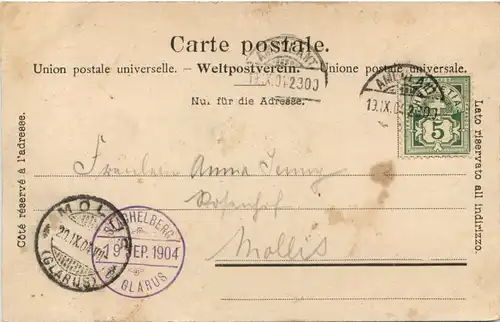 Carte postale.
Union postale universelle. – Weltpostverein. – Unione postale universale.
Nur für die Adresse.
Côté réservé à l'adresse.
Lato riservato all indirizzo.
19.IX.04
5
Fräulein Anna Jenny
Rosenhof
Mollis
MOLLIS
20.IX.04
(GLARUS)
19 SEP. 1904
GLARUS